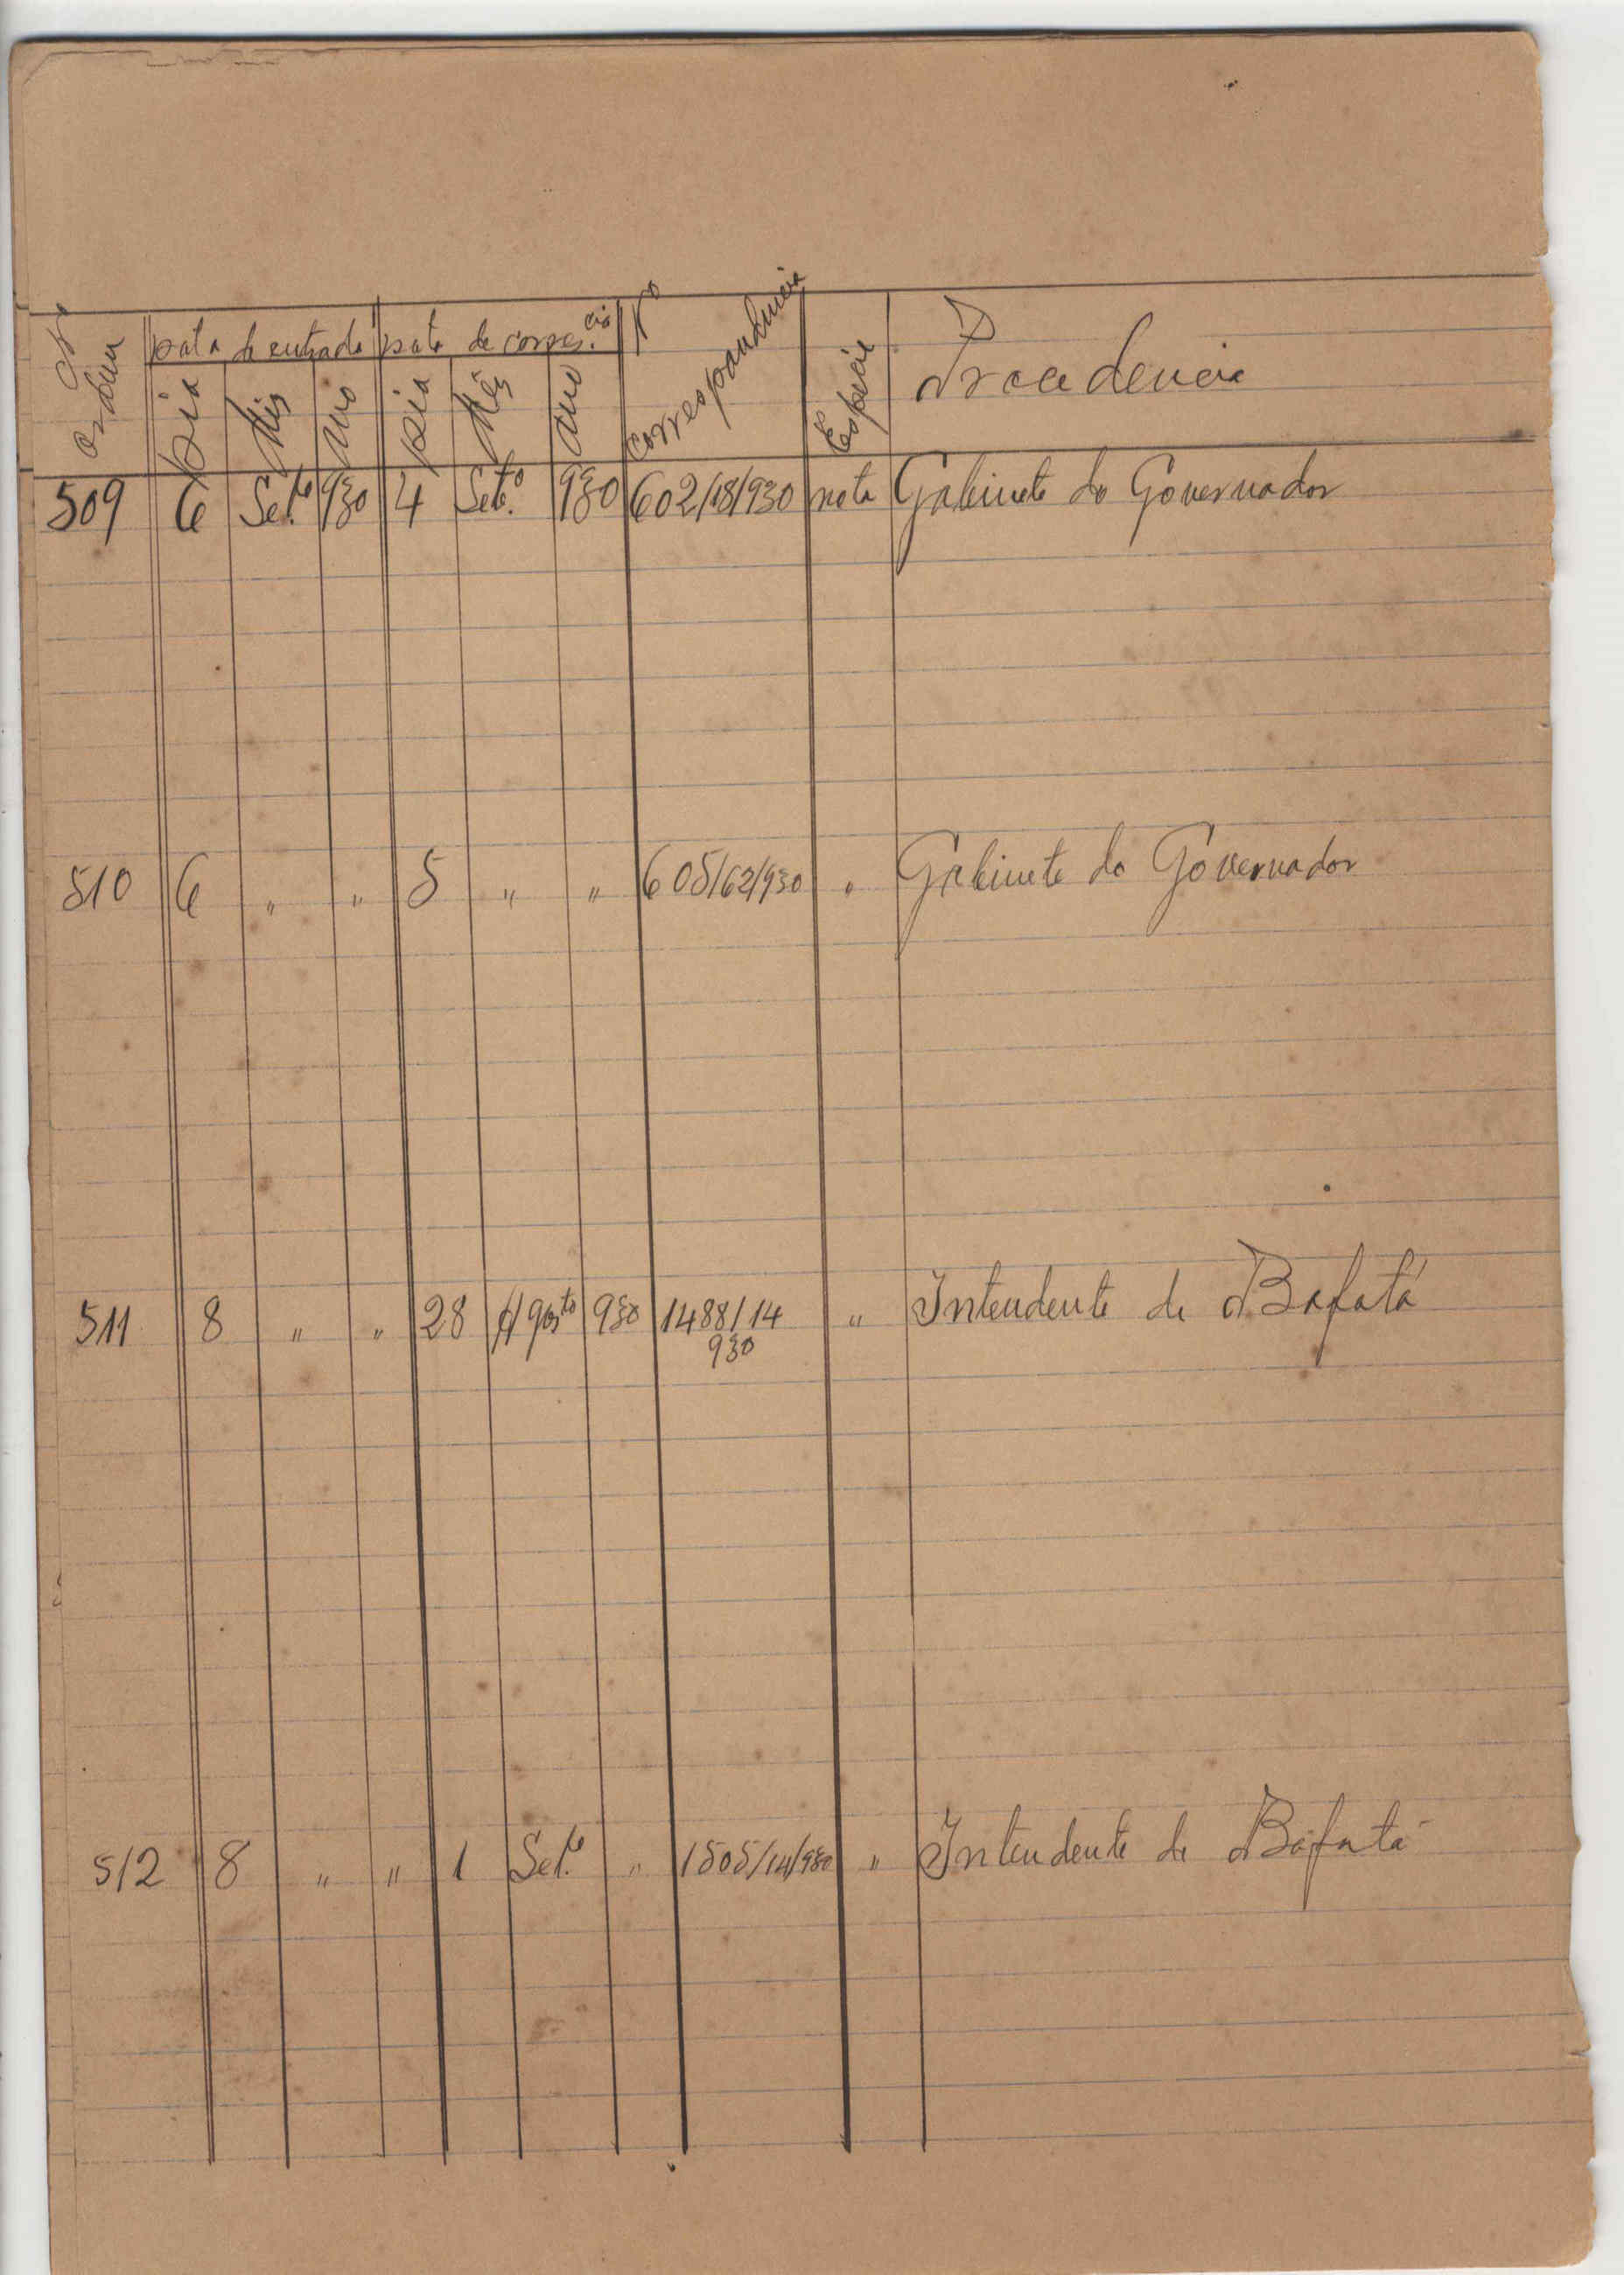 Nº ordem | Data de entrada | Data de corres.cia | Nº Correspondencia | Especie | Procedencia
Dia | Mês | Ano | Dia | Mês | Ano
509 | 6 | Set.º | 930 | 4 | Setº. | 930 | 602/18/930 | nota | Gabinete do Governador
510 | 6 | " | " | 5 | " | " | 605/62/930 | " | Gabinete do Governador
511 | 8 | " | " | 28 | Agosto | 930 | 1488/14 | " | Intendente de Bafatá
930
512 | 8 | " | " | 1 | Set.º | " | 1505/14/930 | " | Intendente de Bafatá